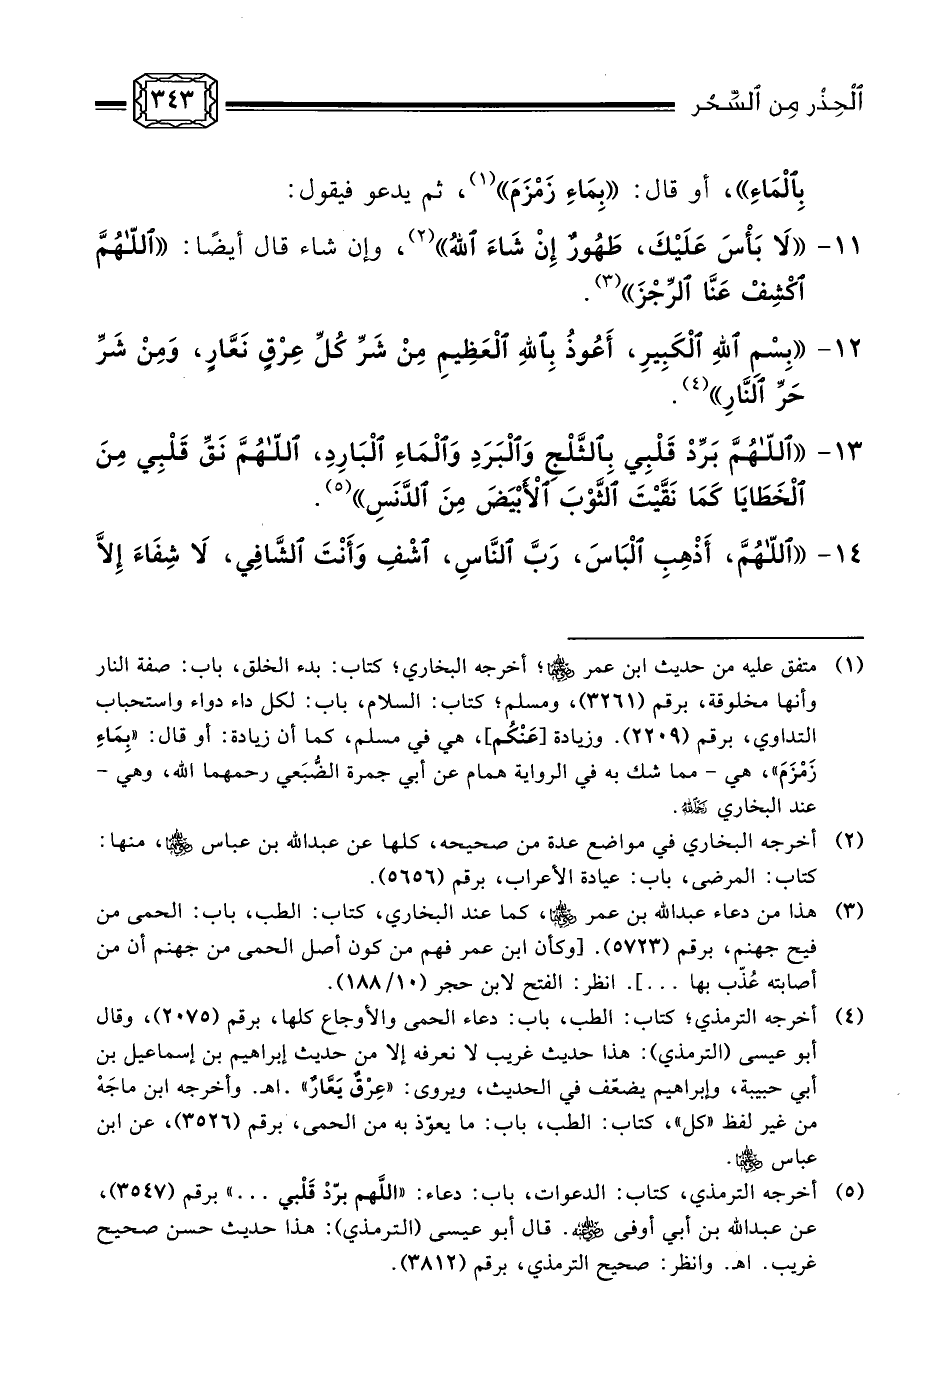 ٱلْحِذْر مِن ٱلسِّحْر
٣٤٣
بِٱلْمَاءِ»، أو قال: «بِمَاءِ زَمْزَمَ»(١)، ثم يدعو فيقول:
١١- «لَا بَأْسَ عَلَيْكَ، طَهُورٌ إِنْ شَاءَ ٱللهُ»(٢)، وإن شاء قال أيضًا: «ٱللّٰهُمَّ
ٱكْشِفْ عَنَّا ٱلرِّجْزَ»(٣).
١٢- «بِسْمِ ٱللهِ ٱلْكَبِيرِ، أَعُوذُ بِٱللهِ ٱلْعَظِيمِ مِنْ شَرِّ كُلِّ عِرْقٍ نَعَّارٍ، وَمِنْ شَرِّ
حَرِّ ٱلنَّارِ»(٤).
١٣- «ٱللّٰهُمَّ بَرِّدْ قَلْبِي بِٱلثَّلْجِ وَٱلْبَرَدِ وَٱلْمَاءِ ٱلْبَارِدِ، ٱللّٰهُمَّ نَقِّ قَلْبِي مِنَ
ٱلْخَطَايَا كَمَا نَقَّيْتَ ٱلثَّوْبَ ٱلْأَبْيَضَ مِنَ ٱلدَّنَسِ»(٥).
١٤- «ٱللّٰهُمَّ، أَذْهِبِ ٱلْبَاسَ، رَبَّ ٱلنَّاسِ، ٱشْفِ وَأَنْتَ ٱلشَّافِي، لَا شِفَاءَ إِلاَّ
(١) متفق عليه من حديث ابن عمر رضي الله عنهما؛ أخرجه البخاري؛ كتاب: بدء الخلق، باب: صفة النار
وأنها مخلوقة، برقم (٣٢٦١)، ومسلم؛ كتاب: السلام، باب: لكل داء دواء واستحباب
التداوي، برقم (٢٢٠٩). وزيادة [عَنْكُم]، هي في مسلم، كما أن زيادة: أو قال: «بِمَاءِ
زَمْزَمَ»، هي - مما شك به في الرواية همام عن أبي جمرة الضُّبَعي رحمهما الله، وهي -
عند البخاري رحمه الله.
(٢) أخرجه البخاري في مواضع عدة من صحيحه، كلها عن عبدالله بن عباس رضي الله عنهما، منها:
كتاب: المرضى، باب: عيادة الأعراب، برقم (٥٦٥٦).
(٣) هذا من دعاء عبدالله بن عمر رضي الله عنهما، كما عند البخاري، كتاب: الطب، باب: الحمى من
فيح جهنم، برقم (٥٧٢٣). [وكأن ابن عمر فهم من كون أصل الحمى من جهنم أن من
أصابته عُذّب بها ...]. انظر: الفتح لابن حجر (١٨٨/١٠).
(٤) أخرجه الترمذي؛ كتاب: الطب، باب: دعاء الحمى والأوجاع كلها، برقم (٢٠٧٥)، وقال
أبو عيسى (الترمذي): هذا حديث غريب لا نعرفه إلا من حديث إبراهيم بن إسماعيل بن
أبي حبيبة، وإبراهيم يضعّف في الحديث، ويروى: «عِرْقٌ يَعَّارٌ» .اهـ. وأخرجه ابن ماجَهْ
من غير لفظ «كل»، كتاب: الطب، باب: ما يعوّذ به من الحمى، برقم (٣٥٢٦)، عن ابن
عباس رضي الله عنهما.
(٥) أخرجه الترمذي، كتاب: الدعوات، باب: دعاء: «اللَّهم برّدْ قَلْبي ...» برقم (٣٥٤٧)،
عن عبدالله بن أبي أوفى رضي الله عنه. قال أبو عيسى (الترمذي): هذا حديث حسن صحيح
غريب. اهـ. وانظر: صحيح الترمذي، برقم (٣٨١٢).